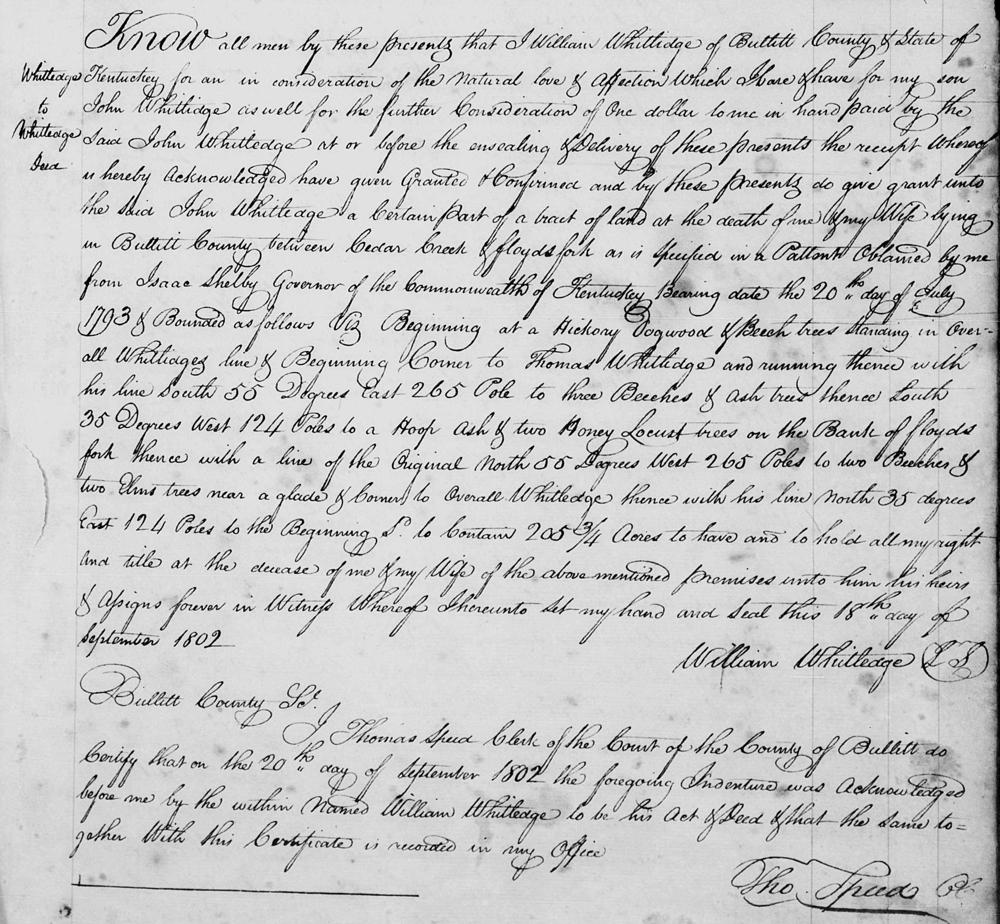 Know all men by these presents that I William Whitledge of Bullitt County & State of
Whitledge
to
Whitledge
Deed
Kentuckey for an in consideration of the Natural love & Affection Which I bare & have for my son
John Whitledge as well for the further Consideration of One dollar to me in hand paid by the
Said John Whitledge at or before the ensealing & Delivery of these presents the receipt Whereof
is hereby Acknowledged have given Granted & Confirmed and by these presents do give grant unto
the said John Whitledge a Certain part of a tract of land at the death of me & my Wife lying
in Bullitt County between Cedar Creek & floyds fork as is specified in a Pattent Obtained by me
from Isaac Shelby Governor of the Commonwealth of Kentuckey Bearing date the 20th day of July
1793 & Bounded as follows Viz Beginning at a Hickory Dogwood & Beech trees standing in Over-
all Whitledges line & Beginning Corner to Thomas Whitledge and running thence with
his line South 55 Degrees East 265 Pole to three Beeches & Ash trees thence South
35 Degrees West 124 Poles to a Hoop Ash & two Honey Locust trees on the Bank of floyds
fork thence with a line of the Original North 55 Degrees West 265 Poles to two Beeches &
two Elms trees near a glade & Corner to Overall Whitledge thence with his line North 35 degrees
East 124 Poles to the Beginning Sd. to Contain 205 3/4 Acres to have and to hold all my right
and title at the decease of me & my Wife of the above mentioned premises unto him his heirs
& Assigns forever in Witness Whereof I hereunto set my hand and seal this 18th day of
September 1802
William Whitledge L S
Bullitt County Sct.
I Thomas Speed Clerk of the Court of the County of Bullitt do
Certify that on the 20th day of September 1802 the foregoing Indenture was Acknowledged
before me by the within Named William Whitledge to be his Act & Deed & that the same to=
gether With this Certificate is recorded in my Office
Tho. Speed Clk